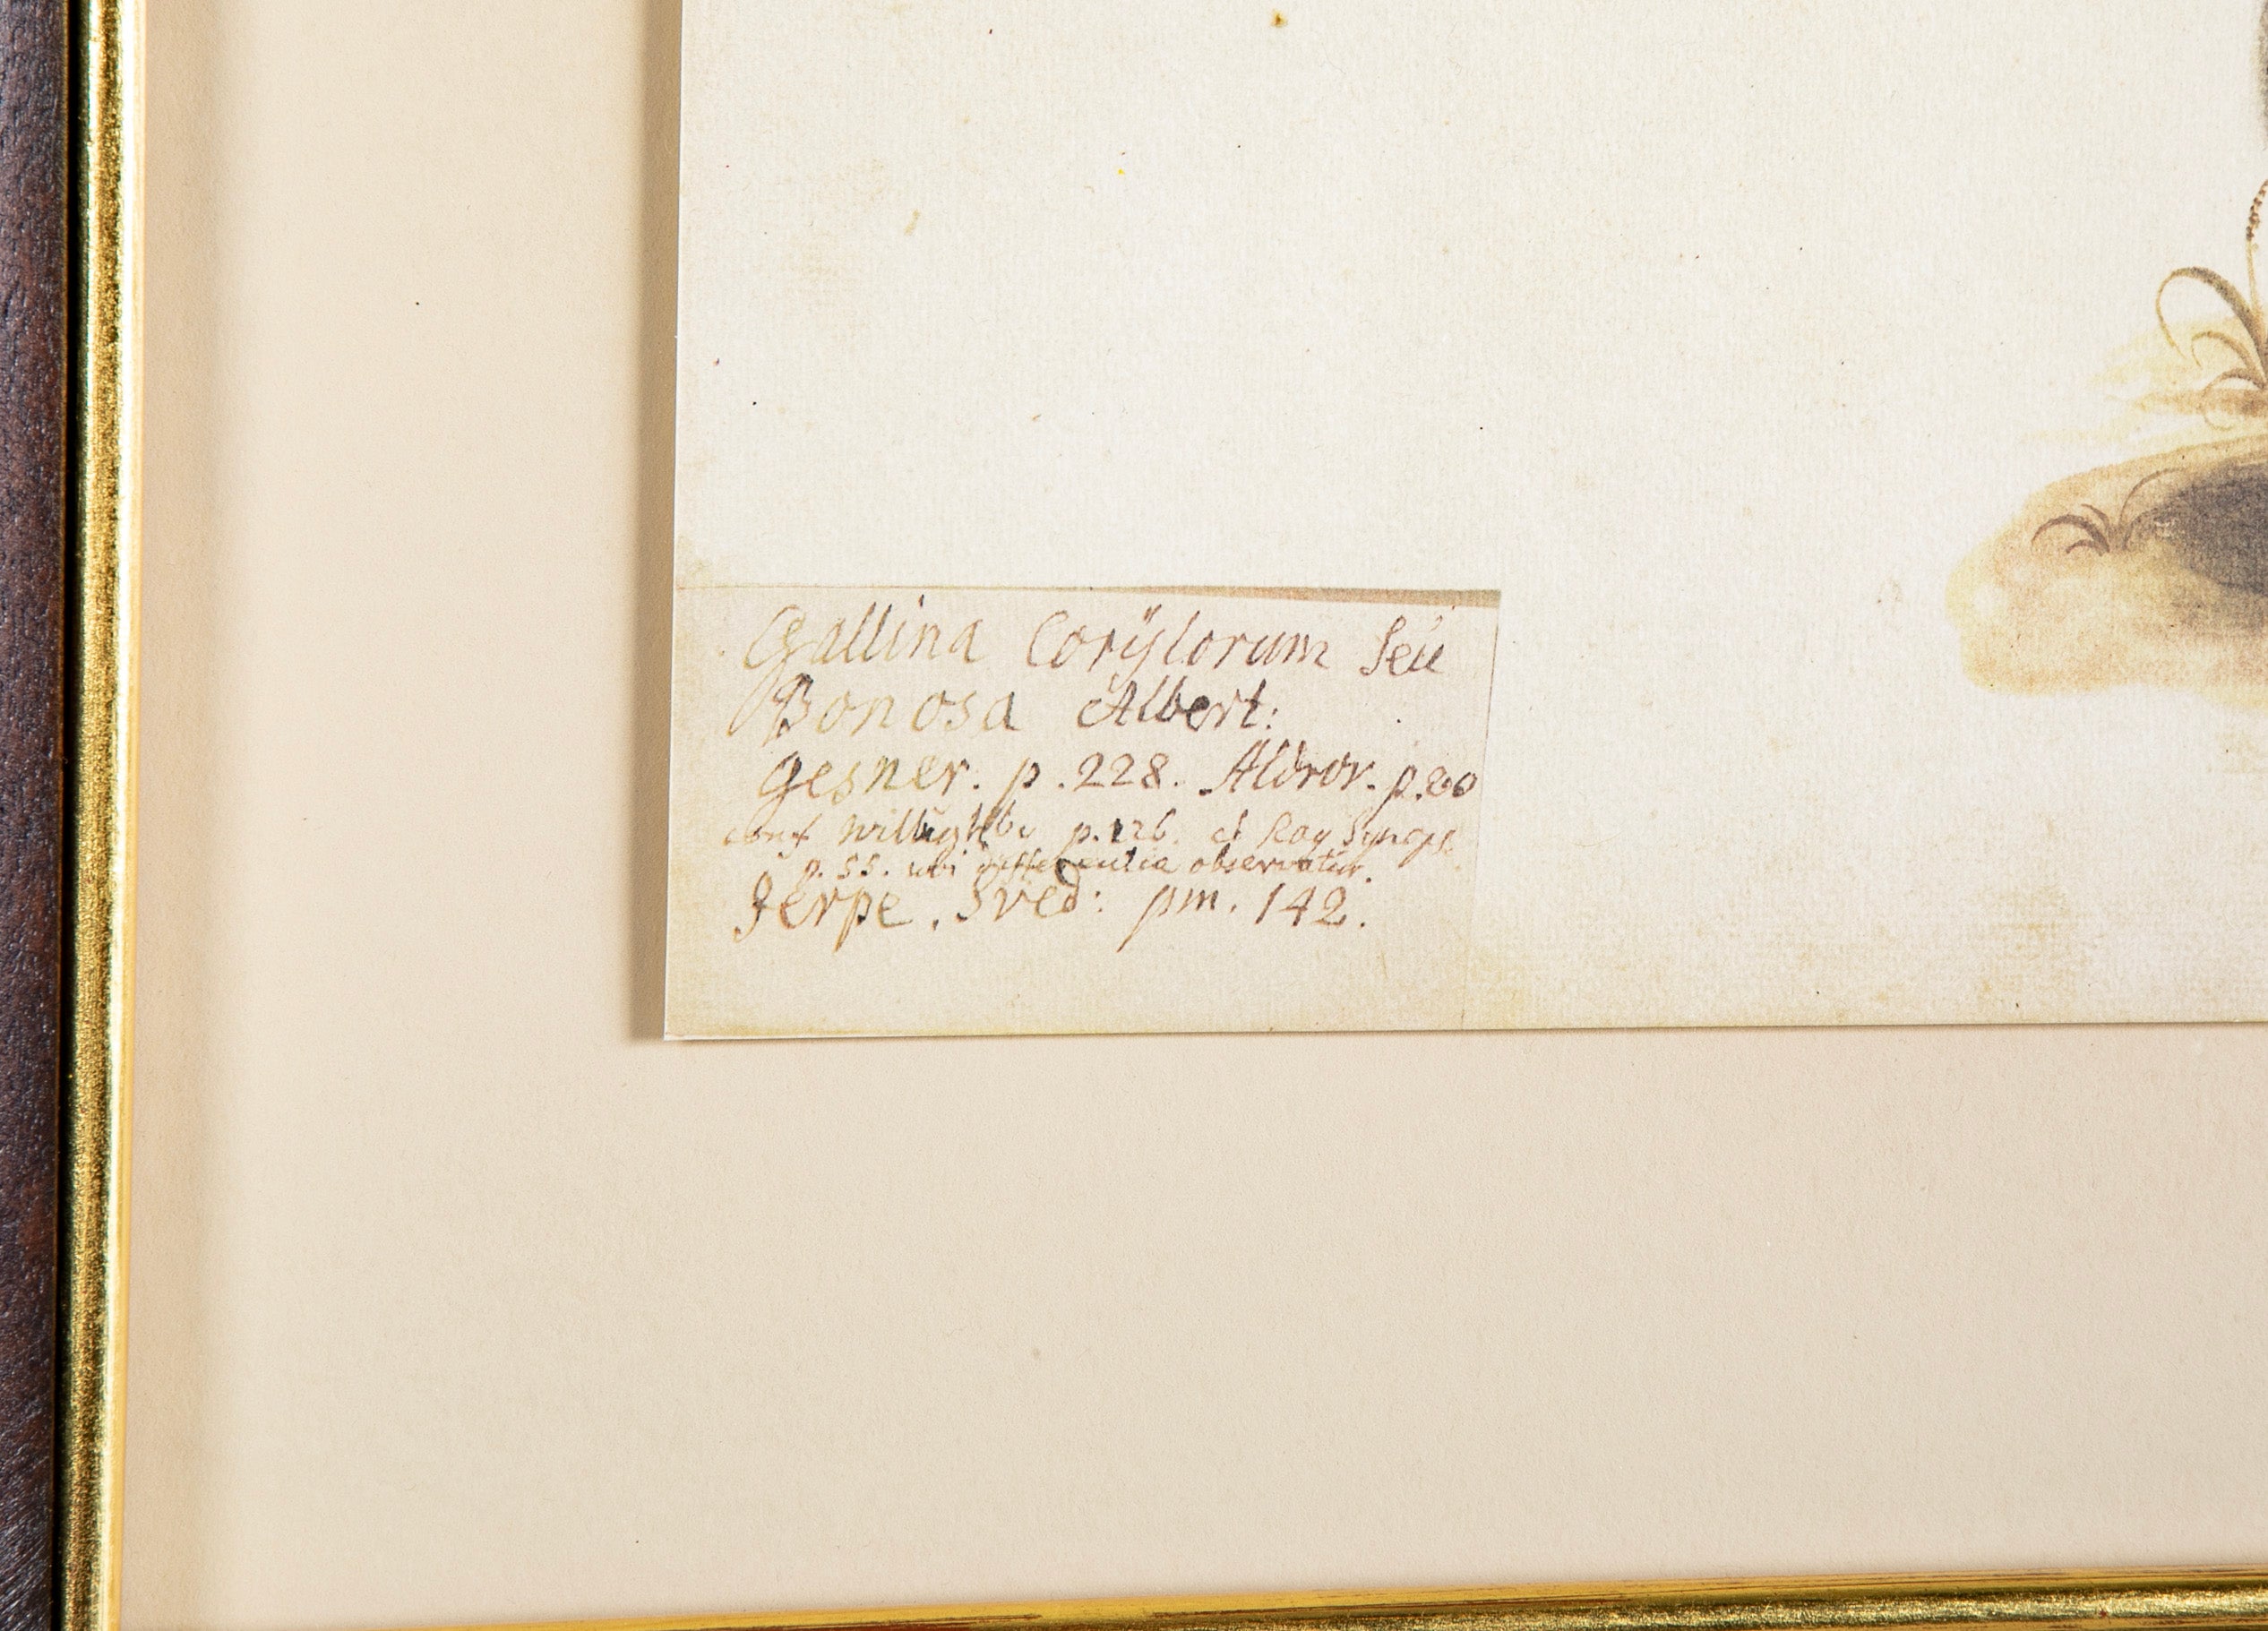 Gallina Corÿlorum Seu
Bonosa Albert:
Gesner. p. 228. Aldrov. p. 80
conf Willughb: p. 126. et Ray Synops.
p. 55. ubi differentia observatur.
Jerpe. Sved: pm. 142.